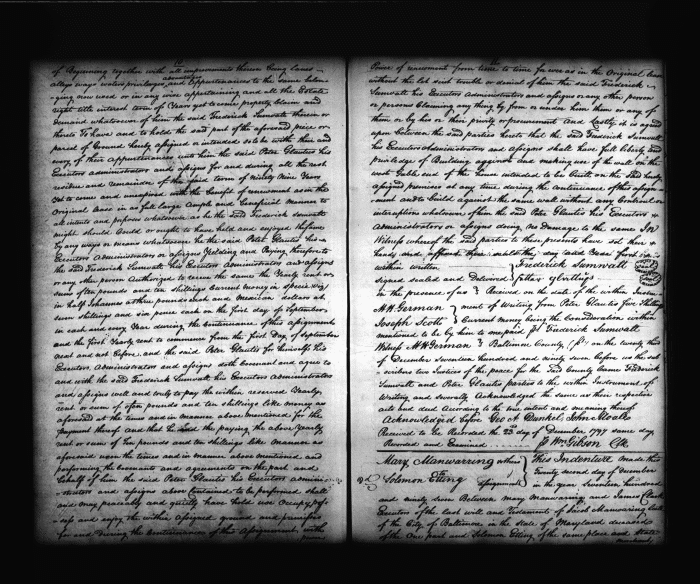 of Beginning together with all improvements thereon being lanes
alleys ways waters privileges advantages and appurtenances to the same belon
ging now used or in any wise appertaining and all the Estate
right title interest term of Years yet to come property claim and
demand whatsoever of him the said Frederick Sumwalt therein or
thereto To have and to hold the said part of the aforesaid piece or
parcel of Ground hereby assigned or intended so to be with their and
every of their appurtenances unto him the said Peter Glautis his
Executors administrators and assigns for and during all the rest
residue and remainder of the term of Ninety Nine Years
yet to come and unexpired with the benefit of renewment as in the
Original Lease in as full large ample and beneficial manner to
all intents and purposes whatsoever as he the said Frederick Sumwalt
might should Could or ought to have held and enjoyed the same
by any ways or means whatsoever he the said Peter Glautis his
Executors Administrators or assigns Yielding and Paying therefor to
the said Frederick Sumwalt his Executors Administrators and assigns
or any other person Authorized to receive the same the Yearly rent or
sum of ten pounds and ten shillings Current money in specie viz
in half Johannes at three pounds each and Mexican dollars at
seven shillings and six pence each on the first day of September
in each and every Year during the Continuance of this assignment
and the first Yearly rent to commence from the first Day of September
next and not before and the said Peter Glautis for himself his
Executors Administrators and assigns doth Covenant and agree to
and with the said Frederick Sumwalt his Executors Administrators
and assigns well and truly to pay the within reserved Yearly
rent or sum of ten pounds and ten shillings like money as
aforesaid at the times and in manner above mentioned for the
payment thereof and that he the paying the above Yearly
rent or sum of Ten pounds and ten shillings like manner as
aforesaid upon the times and in manner above mentioned and
performing the Covenants and agreements on the part and
behalf of him the said Peter Glautis his Executors admini
strators and assigns above Contained to be performed shall
and may peaceably and quietly have hold use Occupy pos
sess and enjoy the within assigned ground and premises
for and during the Continuance of this assignment with
Power of renewment from time to time for ever as in the Original Lease
without the let suit trouble or denial of him the said Frederick
Sumwalt his Executors Administrators and assigns or any other person
or persons Claiming any thing by from or under him them or any of
them or by his or their privity or procurement And Lastly it is agreed
upon between the said parties hereto that the said Frederick Sumwalt
his Executors Administrators and assigns shall have full liberty and
priviledge of Building against and making use of the wall on the
west Gable end of the house intended to be Built on the said hereby
assigned premises at any time during the continuance of this assign
ment and to Build against the same without any Controul or
interruption whatsoever of him the said Peter Glautis his Executors
Administrators or assigns doing no Damage to the same In
Witness whereof the said parties to these presents have set their
hands and affixed their seals the day and Year first in
within written
Frederick Sumwalt
signed sealed and Delivered
Peter Glautis
in the presence of us
Received on the date of the within Inden
M H German
ment of Writing from Peter Glautis five shillings
Joseph Scott
Current money being the Consideration within
mentioned to be by him to me paid pr Frederick Sumwalt
Witness M H German
Baltimore County on the twenty third
of December seventeen hundred and ninety seven before us the sub
scribers two Justices of the peace for the said County Came Frederick
Sumwalt and Peter Glautis parties to the within Instrument of
Writing and severally Acknowledged the same as their respective
acts and deed According to the true intent and meaning thereof
Acknowledged before Geo G Dunkel John Moale
Received to be Recorded the 23d day of December 1797 same day
Recorded and Examined
pr Wm Gibson Clk
Mary Manwarring others
Solomon Etting
assignment
This Indenture made this
Twenty second day of December
in the year seventeen hundred
and ninety seven Between Mary Manwarring and James Clark
Executors of the last will and Testament of Jacob Manwaring late
of the City of Baltimore in the State of Maryland deceased
of the One part and Solomon Etting of the same place and State